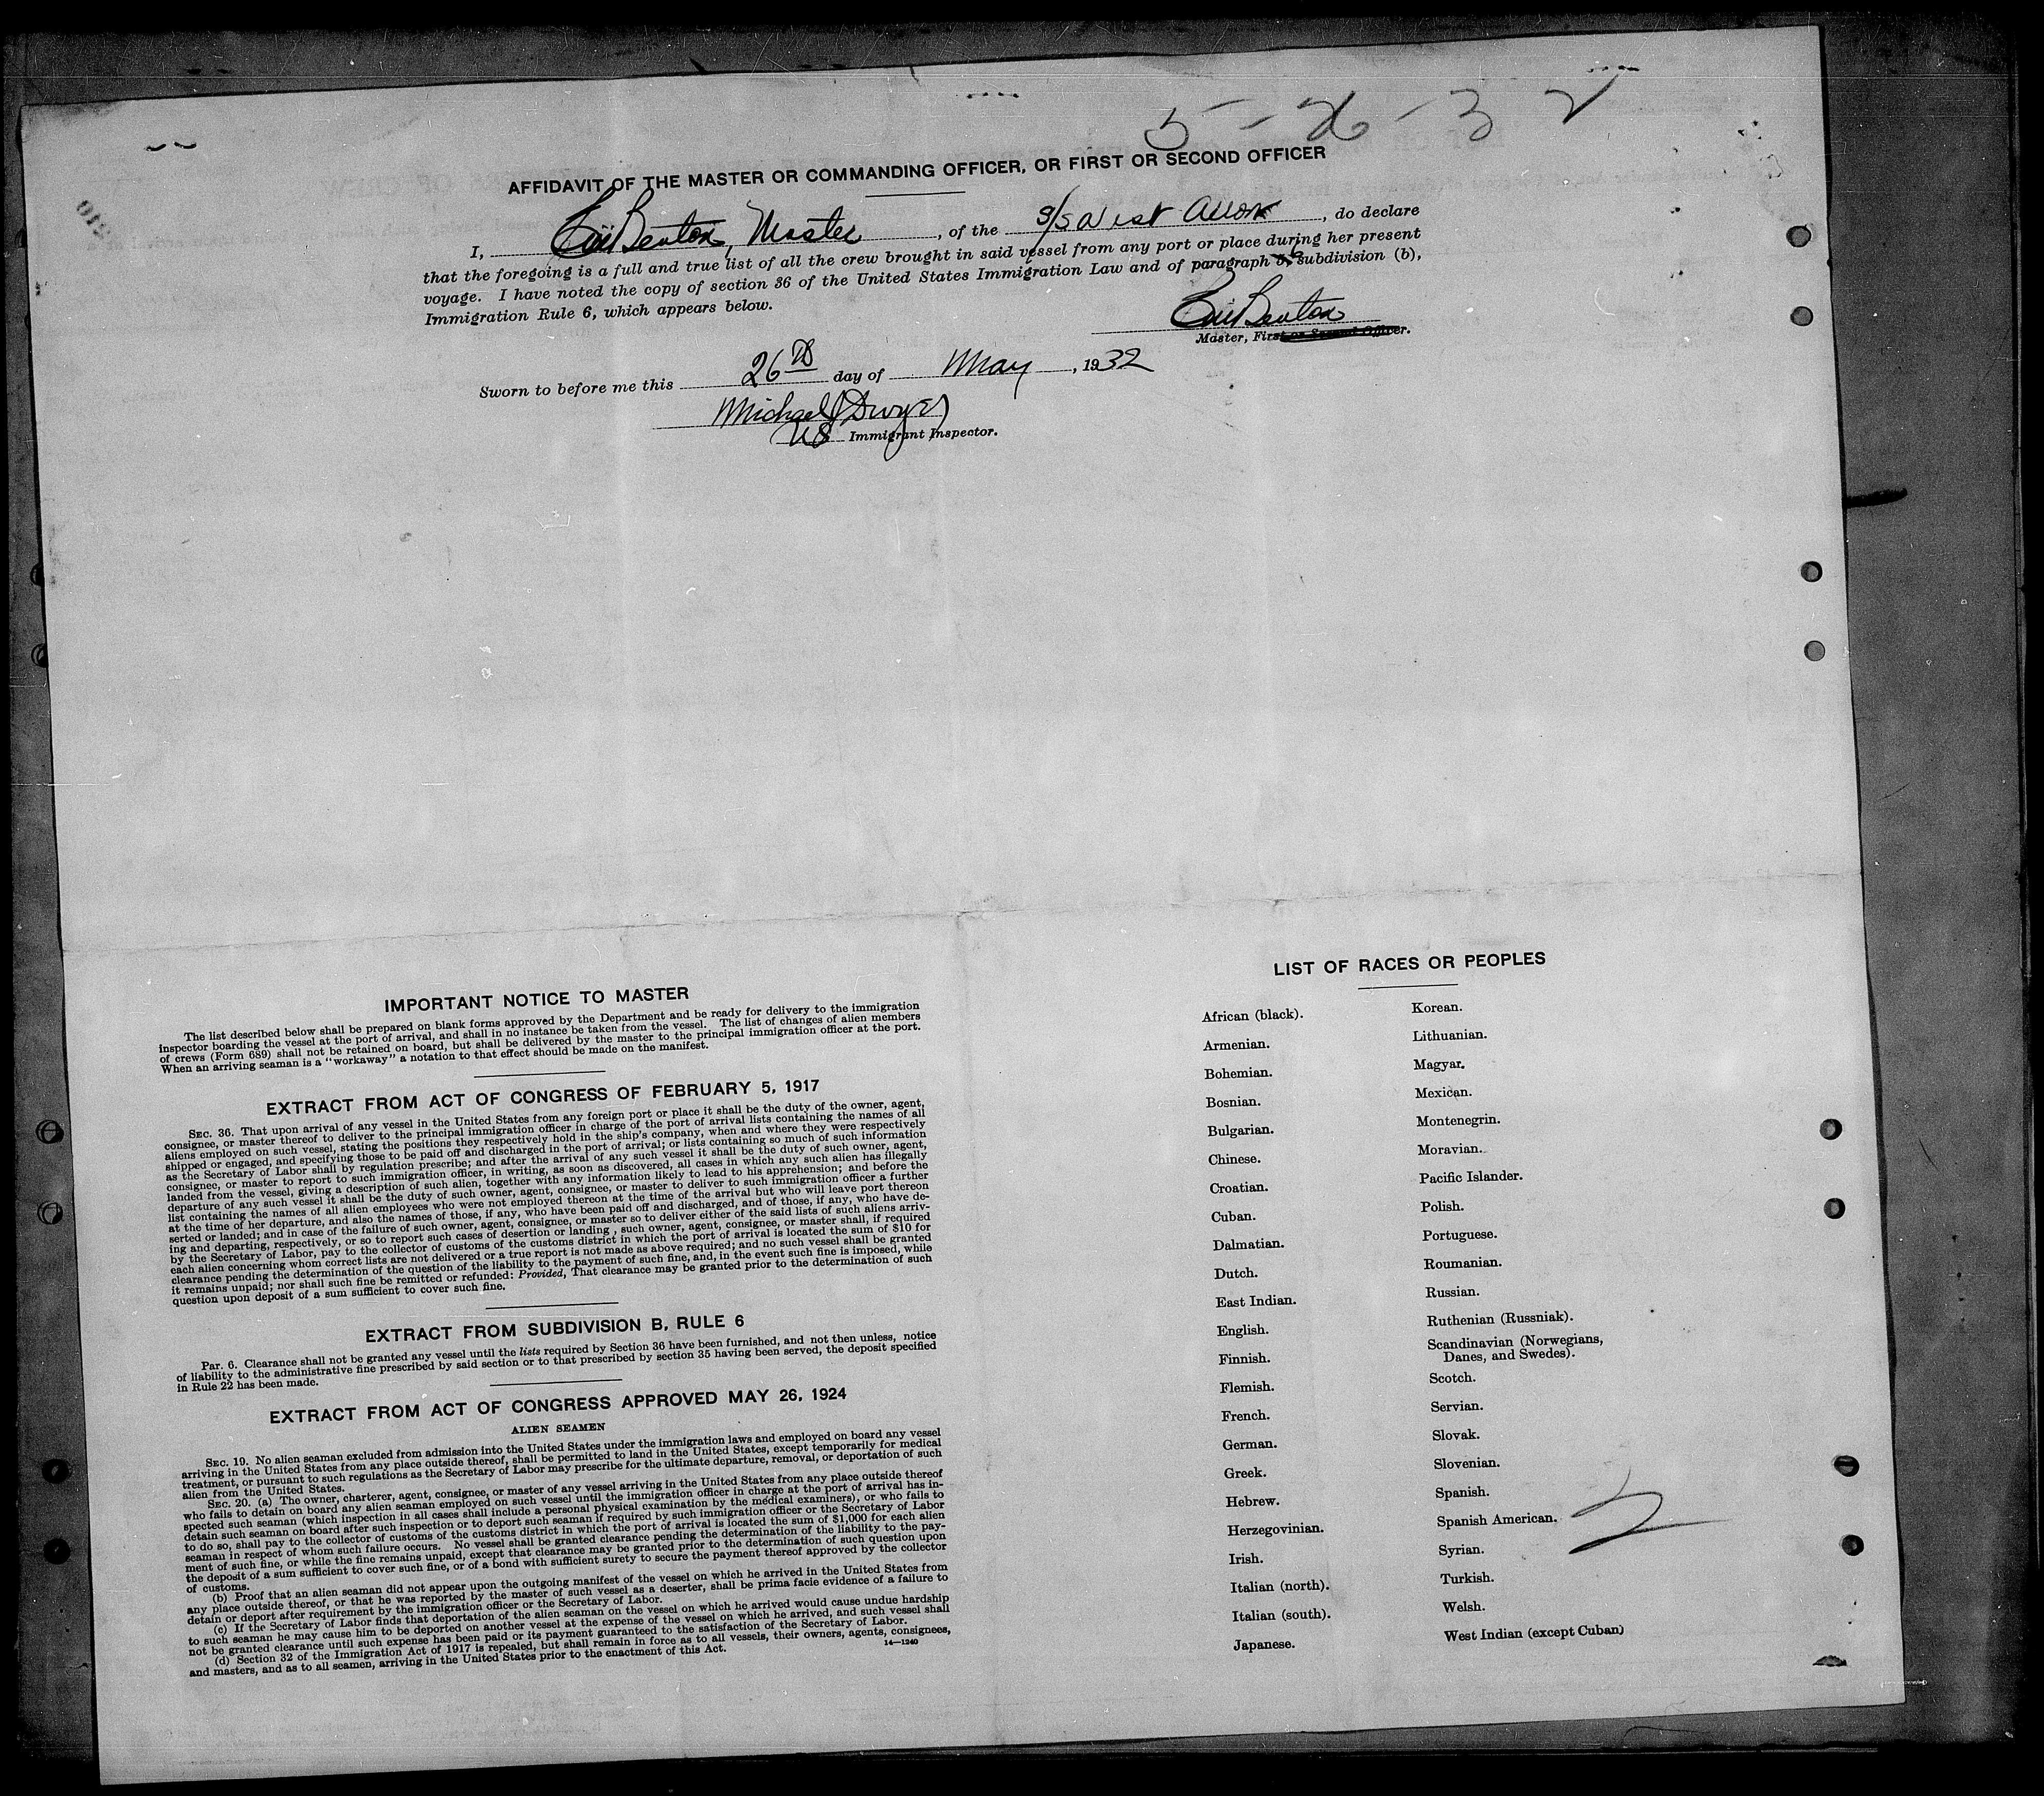 5-26-32
AFFIDAVIT OF THE MASTER OR COMMANDING OFFICER, OR FIRST OR SECOND OFFICER
I, Benton, Master, of the S/S West, do declare
that the foregoing is a full and true list of all the crew brought in said vessel from any port or place during her present
voyage. I have noted the copy of section 36 of the United States Immigration Law and of paragraph subdivision (b),
Immigration Rule 6, which appears below.
Benton
Master, First or Second Officer.
Sworn to before me this 26th day of May, 1932
Michael J Dwyer
US Immigrant Inspector.
IMPORTANT NOTICE TO MASTER
The list described below shall be prepared on blank forms approved by the Department and be ready for delivery to the immigration
inspector boarding the vessel at the port of arrival, and shall in no instance be taken from the vessel. The list of changes of alien members
of crews (Form 689) shall not be retained on board, but shall be delivered by the master to the principal immigration officer at the port.
When an arriving seaman is a "workaway" a notation to that effect should be made on the manifest.
EXTRACT FROM ACT OF CONGRESS OF FEBRUARY 5, 1917
SEC. 36. That upon arrival of any vessel in the United States from any foreign port or place it shall be the duty of the owner, agent,
consignee, or master thereof to deliver to the principal immigration officer in charge of the port of arrival lists containing the names of all
aliens employed on such vessel, stating the positions they respectively hold in the ship's company, when and where they were respectively
shipped or engaged, and specifying those to be paid off and discharged in the port of arrival; or lists containing so much of such information
as the Secretary of Labor shall by regulation prescribe; and after the arrival of any such vessel it shall be the duty of such owner, agent,
consignee, or master to report to such immigration officer, in writing, as soon as discovered, all cases in which any such alien has illegally
landed from the vessel, giving a description of such alien, together with any information likely to lead to his apprehension; and before the
departure of any such vessel it shall be the duty of such owner, agent, consignee, or master to deliver to such immigration officer a further
list containing the names of all alien employees who were not employed thereon at the time of the arrival but who will leave port thereon
at the time of her departure, and also the names of those, if any, who have been paid off and discharged, and of those, if any, who have de-
serted or landed; and in case of the failure of such owner, agent, consignee, or master so to deliver either of the said lists of such aliens arriv-
ing and departing, respectively, or so to report such cases of desertion or landing, such owner, agent, consignee, or master shall, if required
by the Secretary of Labor, pay to the collector of customs of the customs district in which the port of arrival is located the sum of $10 for
each alien concerning whom correct lists are not delivered or a true report is not made as above required; and no such vessel shall be granted
clearance pending the determination of the question of the liability to the payment of such fine, and, in the event such fine is imposed, while
it remains unpaid; nor shall such fine be remitted or refunded: Provided, That clearance may be granted prior to the determination of such
question upon deposit of a sum sufficient to cover such fine.
EXTRACT FROM SUBDIVISION B, RULE 6
Par. 6. Clearance shall not be granted any vessel until the lists required by Section 36 have been furnished, and not then unless, notice
of liability to the administrative fine prescribed by said section or to that prescribed by section 35 having been served, the deposit specified
in Rule 22 has been made.
EXTRACT FROM ACT OF CONGRESS APPROVED MAY 26, 1924
ALIEN SEAMEN
SEC. 19. No alien seaman excluded from admission into the United States under the immigration laws and employed on board any vessel
arriving in the United States from any place outside thereof, shall be permitted to land in the United States, except temporarily for medical
treatment, or pursuant to such regulations as the Secretary of Labor may prescribe for the ultimate departure, removal, or deportation of such
alien from the United States.
SEC. 20. (a) The owner, charterer, agent, consignee, or master of any vessel arriving in the United States from any place outside thereof
who fails to detain on board any alien seaman employed on such vessel until the immigration officer in charge at the port of arrival has in-
spected such seaman (which inspection in all cases shall include a personal physical examination by the medical examiners), or who fails to
detain such seaman on board after such inspection or to deport such seaman if required by such immigration officer or the Secretary of Labor
to do so, shall pay to the collector of customs of the customs district in which the port of arrival is located the sum of $1,000 for each alien
seaman in respect of whom such failure occurs. No vessel shall be granted clearance pending the determination of the liability to the pay-
ment of such fine, or while the fine remains unpaid, except that clearance may be granted prior to the determination of such question upon
the deposit of a sum sufficient to cover such fine, or of a bond with sufficient surety to secure the payment thereof approved by the collector
of customs.
(b) Proof that an alien seaman did not appear upon the outgoing manifest of the vessel on which he arrived in the United States from
any place outside thereof, or that he was reported by the master of such vessel as a deserter, shall be prima facie evidence of a failure to
detain or deport after requirement by the immigration officer or the Secretary of Labor.
(c) If the Secretary of Labor finds that deportation of the alien seaman on the vessel on which he arrived would cause undue hardship
to such seaman he may cause him to be deported on another vessel at the expense of the vessel on which he arrived, and such vessel shall
not be granted clearance until such expense has been paid or its payment guaranteed to the satisfaction of the Secretary of Labor.
(d) Section 32 of the Immigration Act of 1917 is repealed, but shall remain in force as to all vessels, their owners, agents, consignees,
and masters, and as to all seamen, arriving in the United States prior to the enactment of this Act.
14—1240
LIST OF RACES OR PEOPLES
African (black).
Armenian.
Bohemian.
Bosnian.
Bulgarian.
Chinese.
Croatian.
Cuban.
Dalmatian.
Dutch.
East Indian.
English.
Finnish.
Flemish.
French.
German.
Greek.
Hebrew.
Herzegovinian.
Irish.
Italian (north).
Italian (south).
Japanese.
Korean.
Lithuanian.
Magyar.
Mexican.
Montenegrin.
Moravian.
Pacific Islander.
Polish.
Portuguese.
Roumanian.
Russian.
Ruthenian (Russniak).
Scandinavian (Norwegians,
Danes, and Swedes).
Scotch.
Servian.
Slovak.
Slovenian.
Spanish.
Spanish American.
Syrian.
Turkish.
Welsh.
West Indian (except Cuban)
2